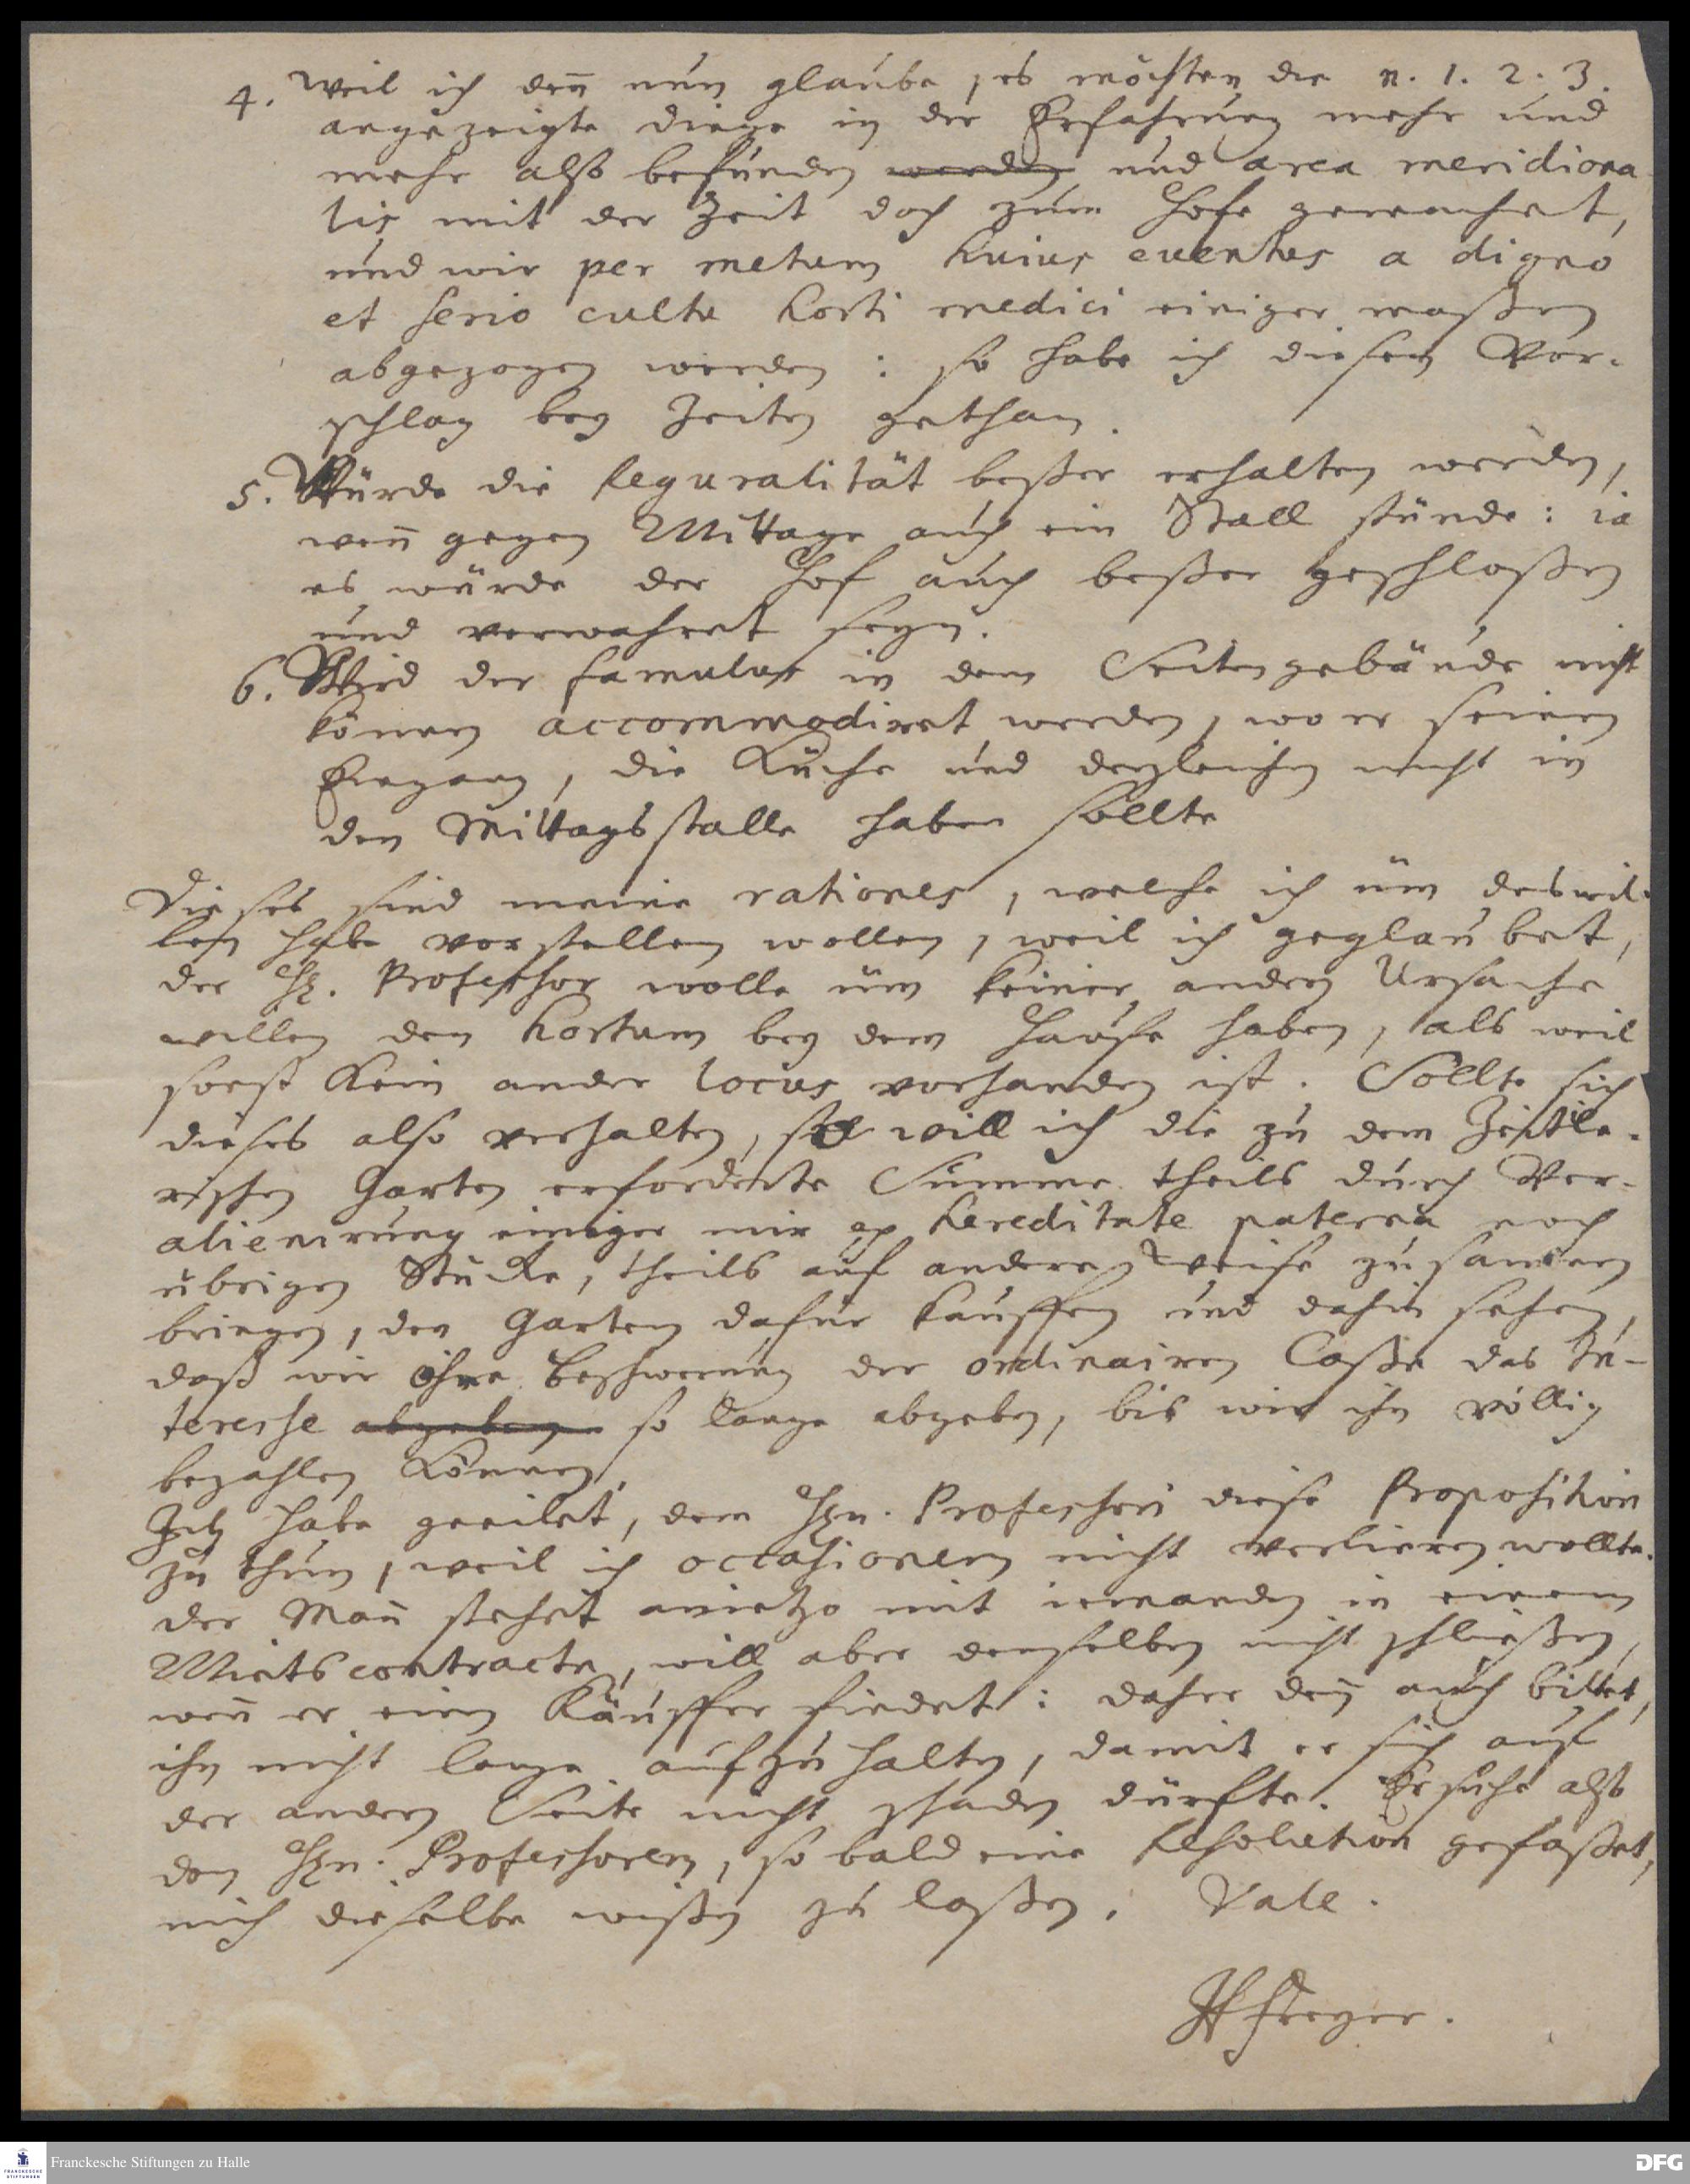 4. Weil ich deñ nun glaube, es möchten die n. 1. 2. 3.
angezeigte dinge in der Erfahrung mehr und
mehr also befunden werden und area meridiona
lis mit der Zeit doch zum Hofe gemachet,
und wir per metum huius eventus a digno
et serio cultu horti medici einiger maßen
abgezogen werden: so habe ich diesen Vor-
schlag bey Zeiten gethan.
5. Würde die Regularität beßer erhalten werden,
weñ gegen Mittage auch ein Stall stünde: ia
es würde der Hof auch beßer geschloßen
und verwahret seyn.
6. Wird der famulus in dem Seitengebäude nicht
können accommodiret werden, wo er seinen
Eingang, die Küche und dergleichen nicht in
den Mittagsstalle haben sollte
Dieses sind meine rationes, welche ich üm deswil-
len habe vorstellen wollen, weil ich geglaubet,
der Hr. Professor wolle üm keiner andern Ursache
willen den hortum bey dem Hause haben, als weil
sonst kein ander locus vorhanden ist. Sollte sich
dieses also verhalten, so will ich die zu dem
rischen Garten erforderte Summe theils durch Ver-
alienirung einiger mir ex hereditate paterna noch
übrigen Stücke, theils auf andere Weise zusammen
bringen, den Garten dafür kauffen und dahin sehen,
daß wir ohne Beschwerung der ordinairen Casse das In-
teresse abgeben so lange abgeben, bis wir ihn völlig
bezahlen können.
Ich habe geeilet, dem Hrn. Professori diese Proposition
zu thun, weil ich occasionem nicht verlieren wollte.
der Mañ stehet anietzo mit iemanden in einem
Mietscontracte, will aber denselben nicht schließen,
weñ er einen Käuffer findet: daher deñ auch bittet,
ihn nicht lange aufzuhalten, damit er sich auf
der andern Seite nicht schaden dürfte. Ersuche also
den Hrn. Professorem, so bald eine Resolution gefaßet,
mich dieselbe wißen zu laßen. Vale.
HFreyer.
Franckesche Stiftungen zu Halle
FRANCKESCHE STIFTUNGEN
DFG